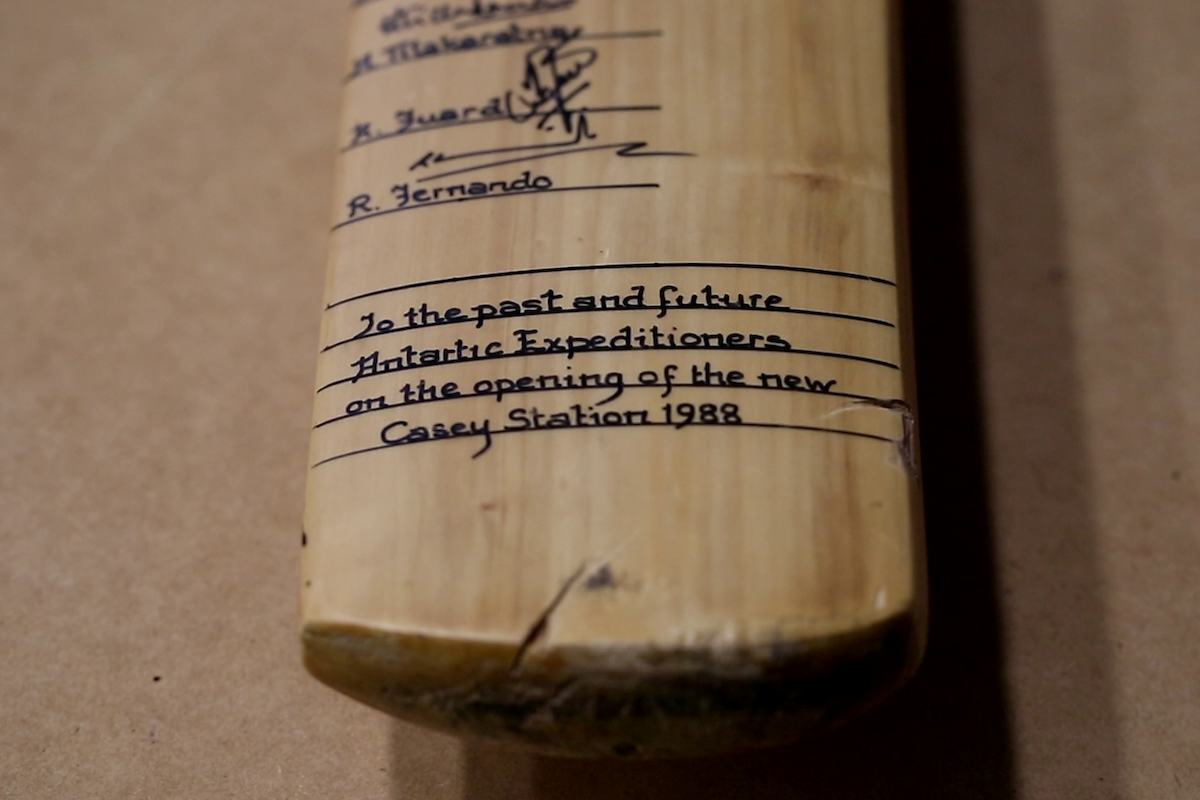 H. Tilakaratne
R. Juard
R. Fernando
To the past and future
Antartic Expeditioners
on the opening of the new
Casey Station 1988